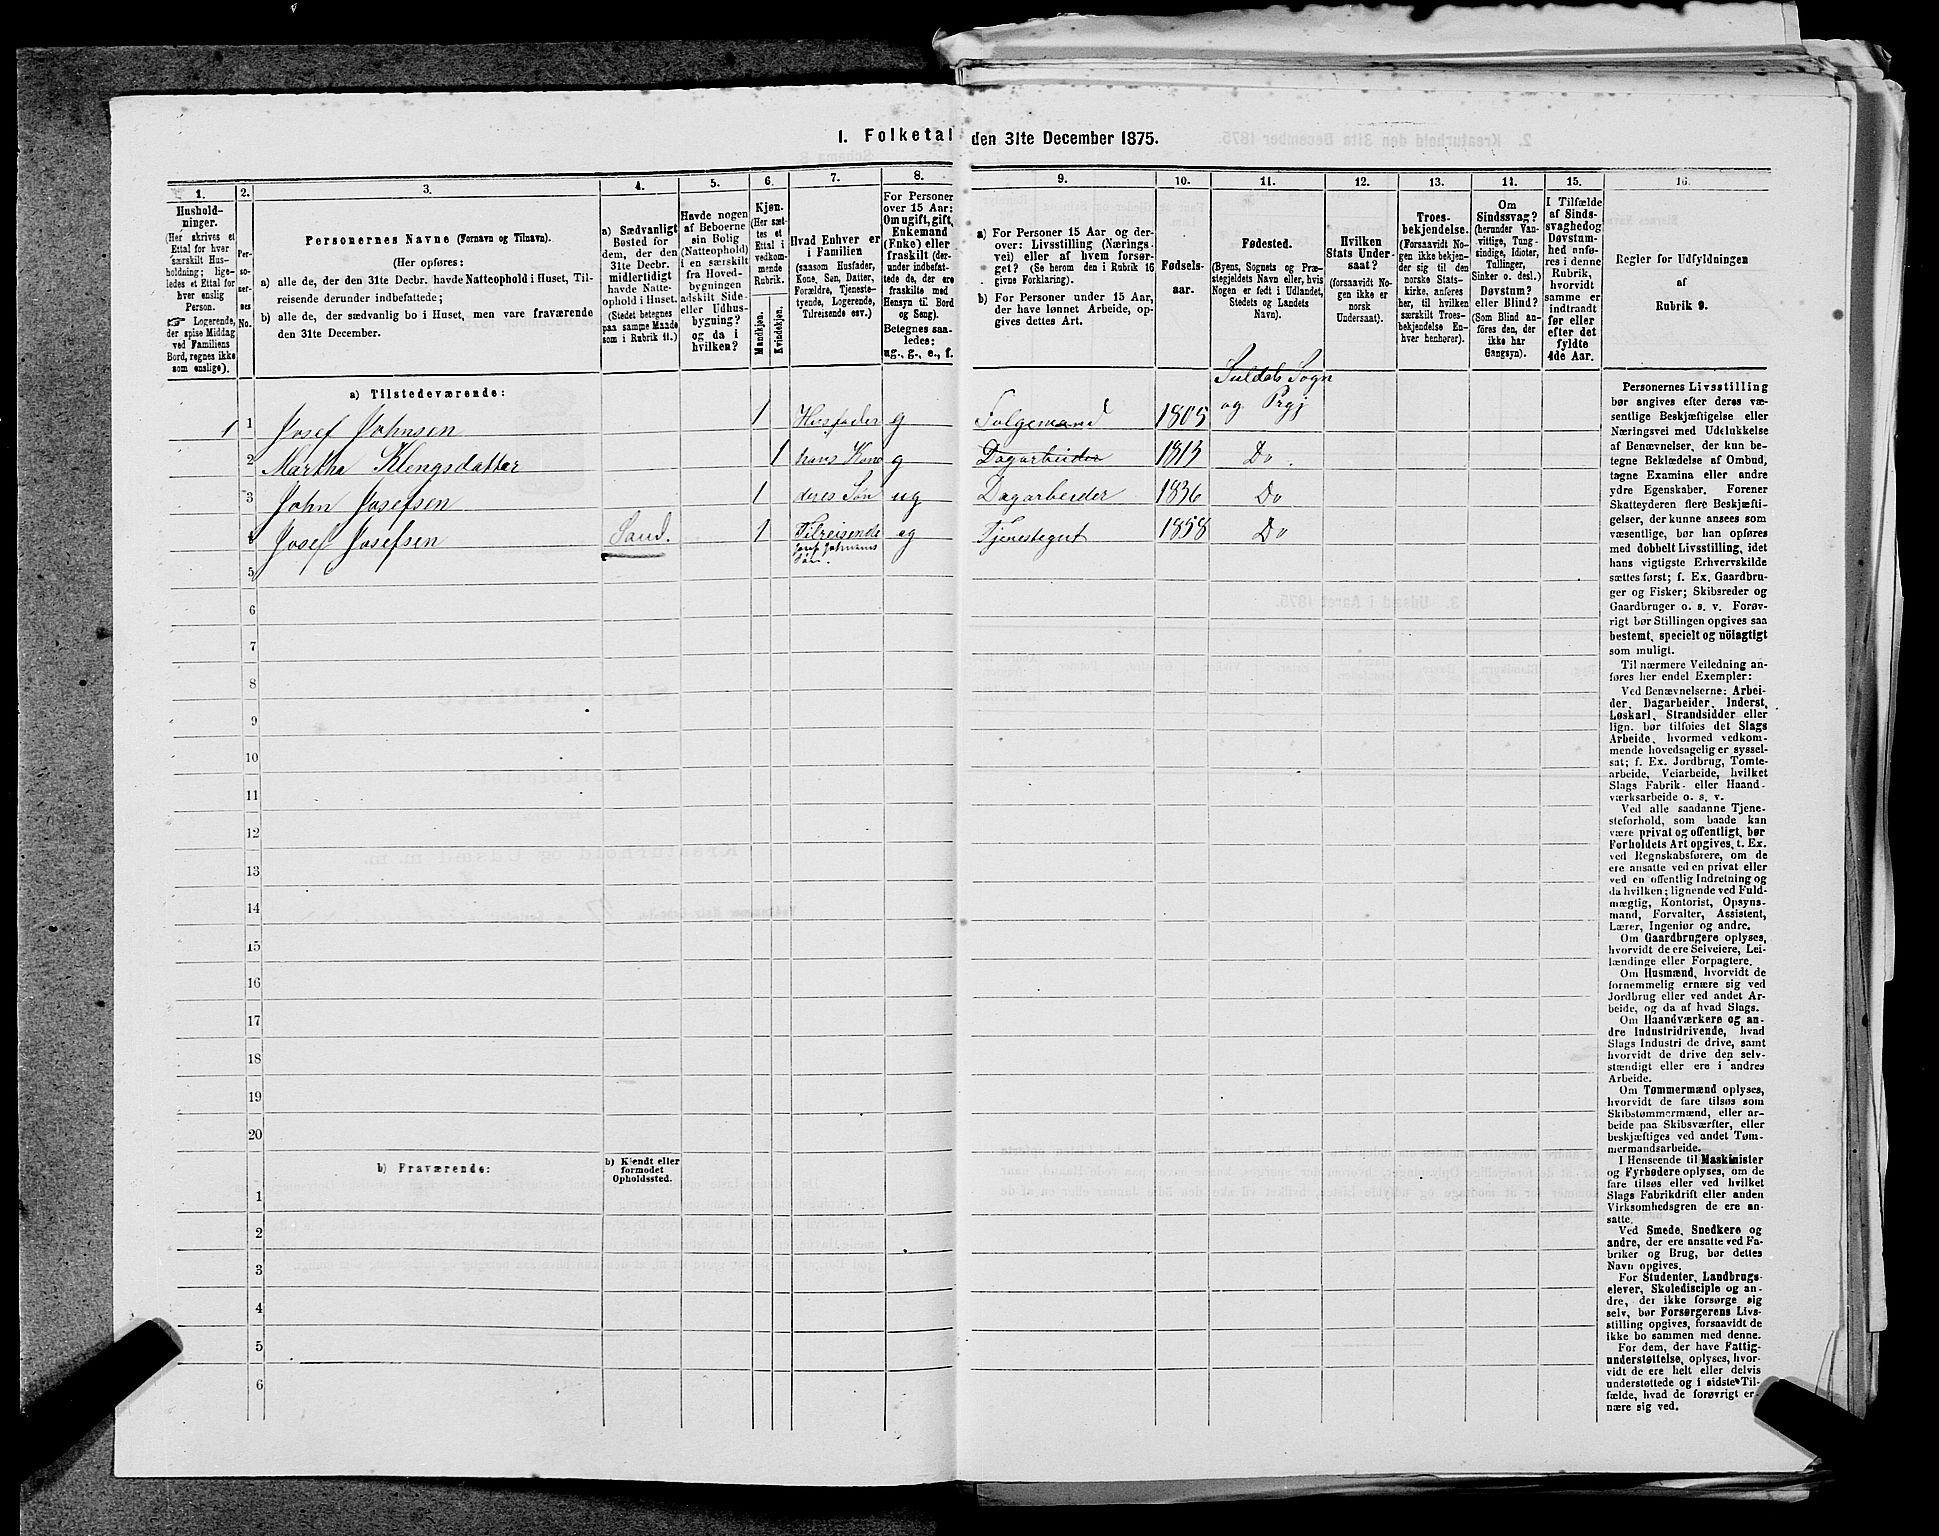 1. Folketal den 31te December 1875.
1. 2. 3. 4. 5. 6. 7. 8. 9. 10. 11. 12. 13. 14. 15. 16.
Hushold-
ninger.
(Her skrives et
Ettal for hver
særskilt Hus-
holdning; lige-
ledes et Ettal for
hver enslig
Person.
☞ Logerende,
der spise Middag
ved Familiens
Bord, regnes ikke
som enslige).
Per-
so-
ner-
nes
No.
Personernes Navne (Fornavn og Tilnavn).
(Her opføres:
a) alle de, der den 31te Decbr. havde Natteophold i Huset, Til-
reisende derunder indbefattede;
b) alle de, der sædvanlig bo i Huset, men vare fraværende
den 31te December.
a) Sædvanligt
Bosted for
dem, der den
31te Decbr.
midlertidigt
havde Natte-
ophold i Huset.
(Stedet betegnes
paa samme Maade
som i Rubrik 11.)
Havde nogen
af Beboerne
sin Bolig
(Natteophold)
i en særskilt
fra Hoved-
bygningen
adskilt Side-
eller Udhus-
bygning?
og da i
hvilken?
Kjøn.
(Her sæt-
tes et
Ettal i
vedkom-
mende
Rubrik.
Mandkjøn.
Kvindekjøn.
Hvad Enhver er
i Familien
(saasom Husfader,
Kone, Søn, Datter,
Forældre, Tjeneste-
tyende, Logerende,
Tilreisende osv.)
For Personer
over 15 Aar:
Om ugift, gift,
Enkemand
(Enke) eller
fraskilt (under
indbefat-
tede de, der ere
fraskilte med
Hensyn til Bord
og Seng).
Betegnes saa-
ledes:
ug., g., e., f.
a) For Personer 15 Aar og der-
over: Livsstilling (Nærings-
vei) eller af hvem forsør-
get? (Se herom den i Rubrik 16
givne Forklaring).
b) For Personer under 15 Aar,
der have lønnet Arbeide, op-
gives dettes Art.
Fødsels-
aar.
Fødested.
(Byens, Sognets og Præ-
stegjeldets Navn eller, hvis
Nogen er født i Udlandet,
Stedets og Landets
Navn).
Hvilken
Stats Under-
saat?
(forsaavidt No-
gen ikke er
norsk
Undersaat).
Troes-
bekjendelse.
(Forsaavidt No-
gen ikke bekjen-
der sig til den
norske Stats-
kirke, anføres
her, til hvilken
særskilt Troes-
bekjendelse En-
hver henhører).
Om
Sindssvag?
(herunder Van-
vittige, Tung-
sindige, Idioter,
Tullinger,
Sinker o. desl.)
Døvstum?
eller Blind?
(Som Blind an-
føres den, der
ikke har
Gangsyn).
I Tilfælde
af Sinds-
svaghed og
Døvstum-
hed anfø-
res i denne
Rubrik,
hvorvidt
samme er
indtraadt
før eller
efter det
fyldte
4de Aar.
Regler for Udfyldningen
af
Rubrik 9.
a) Tilstedeværende:
1 1 Josef Johnsen 1 Husfader g Folgemand 1805 Suldals Sogn
og Prgj
2 Martha Klengsdatter 1 hans Kone g Dagarbeider 1813 Do.
3 John Josefsen 1 deres Søn ug Dagarbeider 1836 Do
4 Josef Josefsen Sand. 1 Tilreisende ug Tjenestegut 1858 Do
Josef Johnsens
Søn.
5
6
7
8
9
10
11
12
13
14
15
16
17
18
19
20
b) Fraværende:
b) Kjendt eller
formodet
Opholdssted.
1
2
3
4
5
6
Personernes Livsstilling
bør angives efter deres væ-
sentlige Beskjæftigelse eller
Næringsvei med Udelukkelse
af Benævnelser, der kun be-
tegne Beklædelse af Ombud,
tagne Examina eller andre
ydre Egenskaber. Forener
Skatteyderen flere Beskjæfti-
gelser, der kunne ansees som
væsentlige, bør han opføres
med dobbelt Livsstilling, idet
hans vigtigste Erhvervskilde
sættes først; f. Ex. Gaardbru-
ger og Fisker; Skibsreder og
Gaardbruger o. s. v. Forøv-
rigt bør Stillingen opgives saa
bestemt, specielt og nöiagtigt
som muligt.
Til nærmere Veiledning an-
føres her endel Exempler:
Ved Benævnelserne: Arbei-
der, Dagarbeider, Inderst,
Løskarl, Strandsidder eller
lign. bør tilføies det Slags
Arbeide, hvormed vedkom-
mende hovedsagelig er syssel-
sat; f. Ex. Jordbrug, Tomte-
arbeide, Veiarbeide, hvilket
Slags Fabrik- eller Haand-
værksarbeide o. s. v.
Ved alle saadanne Tjene-
steforhold, som baade kan
være privat og offentligt, bør
Forholdets Art opgives, t. Ex.
ved Regnskabsførere, om de
ere ansatte ved en privat eller
ved en offentlig Indretning og
da hvilken; lignende ved Fuld-
mægtig, Kontorist, Opsyns-
mand, Forvalter, Assistent,
Lærer, Ingeniør og andre.
Om Gaardbrugere oplyses,
hvorvidt de ere Selveiere, Lei-
lændinge eller Forpagtere.
Om Husmænd, hvorvidt de
fornemmelig ernære sig ved
Jordbrug eller ved andet Ar-
beide, og da af hvad Slags.
Om Haandværkere og an-
dre Industridrivende, hvad
Slags Industri de drive, samt
hvorvidt de drive den selv-
stændigt eller ere i andres
Arbeide.
Om Tømmermænd oplyses,
hvorvidt de fare tilsøs som
Skibstømmermænd, eller ar-
beide paa Skibsværfter, eller
beskjæftiges ved andet Tøm-
mermandsarbeide.
I Henseende til Maskinister
og Fyrbødere oplyses, om de
fare tilsøs eller ved hvilket
Slags Fabrikdrift eller anden
Virksomhedsgren de ere an-
satte.
Ved Smede, Snedkere og
andre, der ere ansatte ved Fa-
briker og Brug, bør dettes
Navn opgives.
For Studenter, Landbrugs-
elever, Skoledisciple og an-
dre, der ikke forsørge sig
selv, bør Forsørgerens Livs-
stilling opgives, forsaavidt de
ikke bo sammen med denne.
For dem, der have Fattig-
understøttelse, oplyses, hvor-
vidt de ere helt eller delvis
understøttede og i sidste Til-
fælde, hvad de forøvrigt er-
nære sig ved.